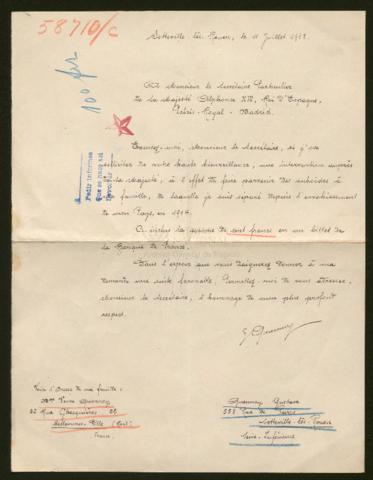 58710/C
100 frs
Sotteville-lès-Rouen, le 11 Juillet 1918.
A Monsieur le Secrétaire Particulier
de la Majesté Alphonse XIII, Roi d'Espagne,
Palais-Royal - Madrid.
Excusez-moi, Monsieur le Secrétaire, si j'ose
solliciter de votre haute bienveillance, une intervention auprès
de la Majesté, à l'effet de faire parvenir des subsides à
ma famille, de laquelle je suis séparé depuis l'envahissement
de mon Pays, en 1914.
Ci inclus la somme de cent francs en un billet de
la Banque de France.
Dans l'espoir que vous daignerez donner à ma
demande une suite favorable, Permettez-moi de vous adresser,
Monsieur le Secrétaire, l'hommage de mon plus profond
respect.
Pedir informes
que se haga
Devolver
G. Quennoy
Voici l'adresse de ma famille:
Mme Veuve Quennoy
32 Rue Ghesquières 32
Hellemmes-Lille (Nord)
France
Quennoy Gustave
353 Rue de Paris
Sotteville-lès-Rouen
Seine-Inférieure